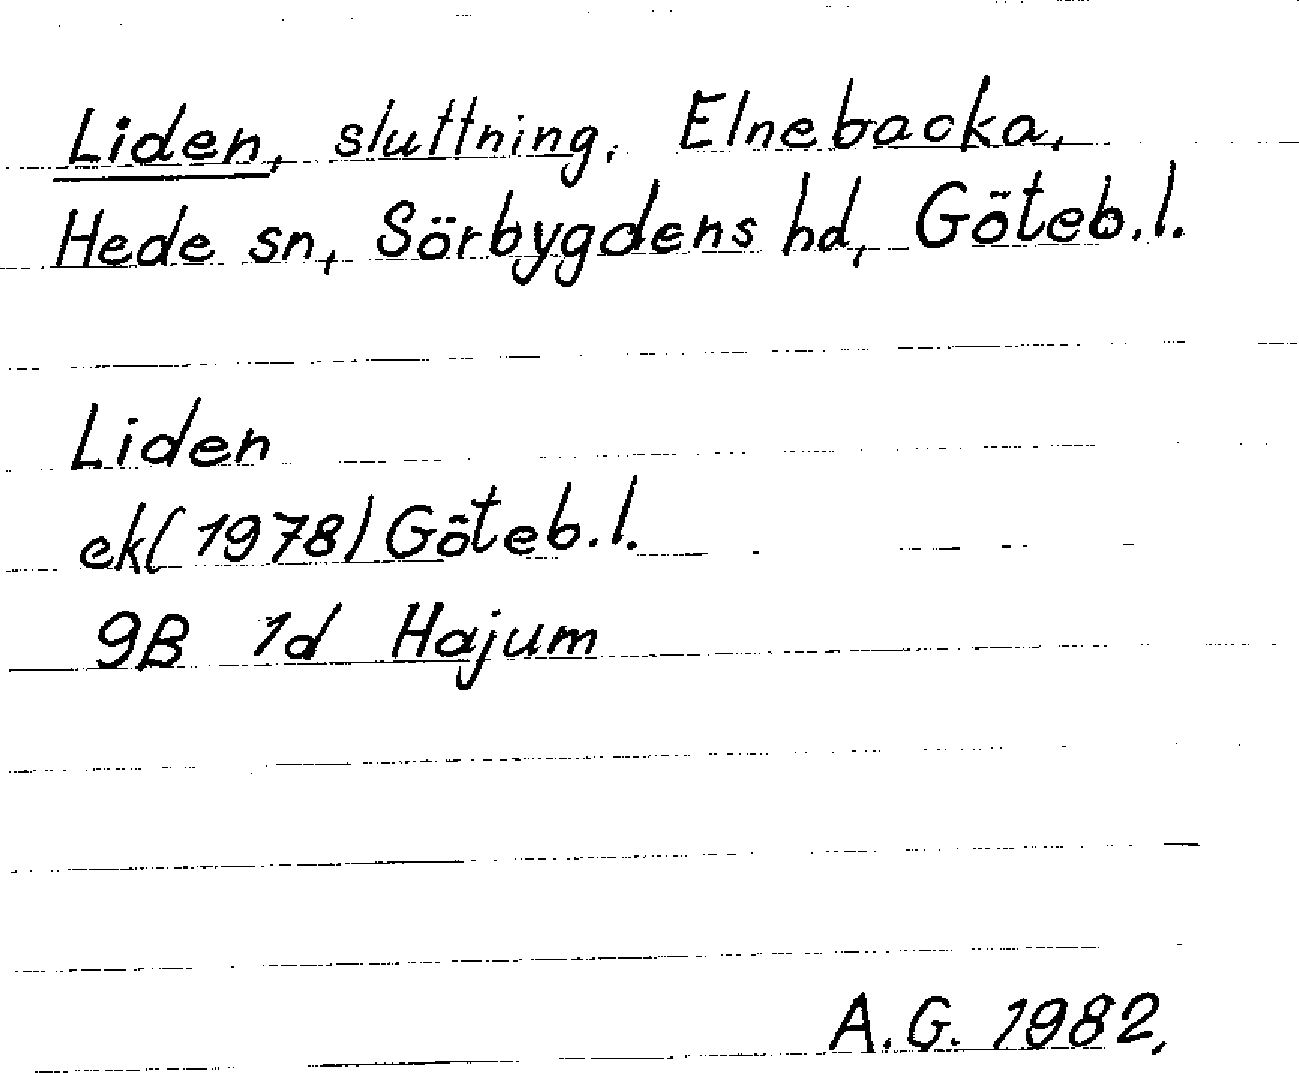 Liden, sluttning, Elnebacka,
Hede sn, Sörbygdens hd, Göteb.l.
Liden
ek(1978) Göteb.l.
9B 1d Hajum
A.G. 1982.